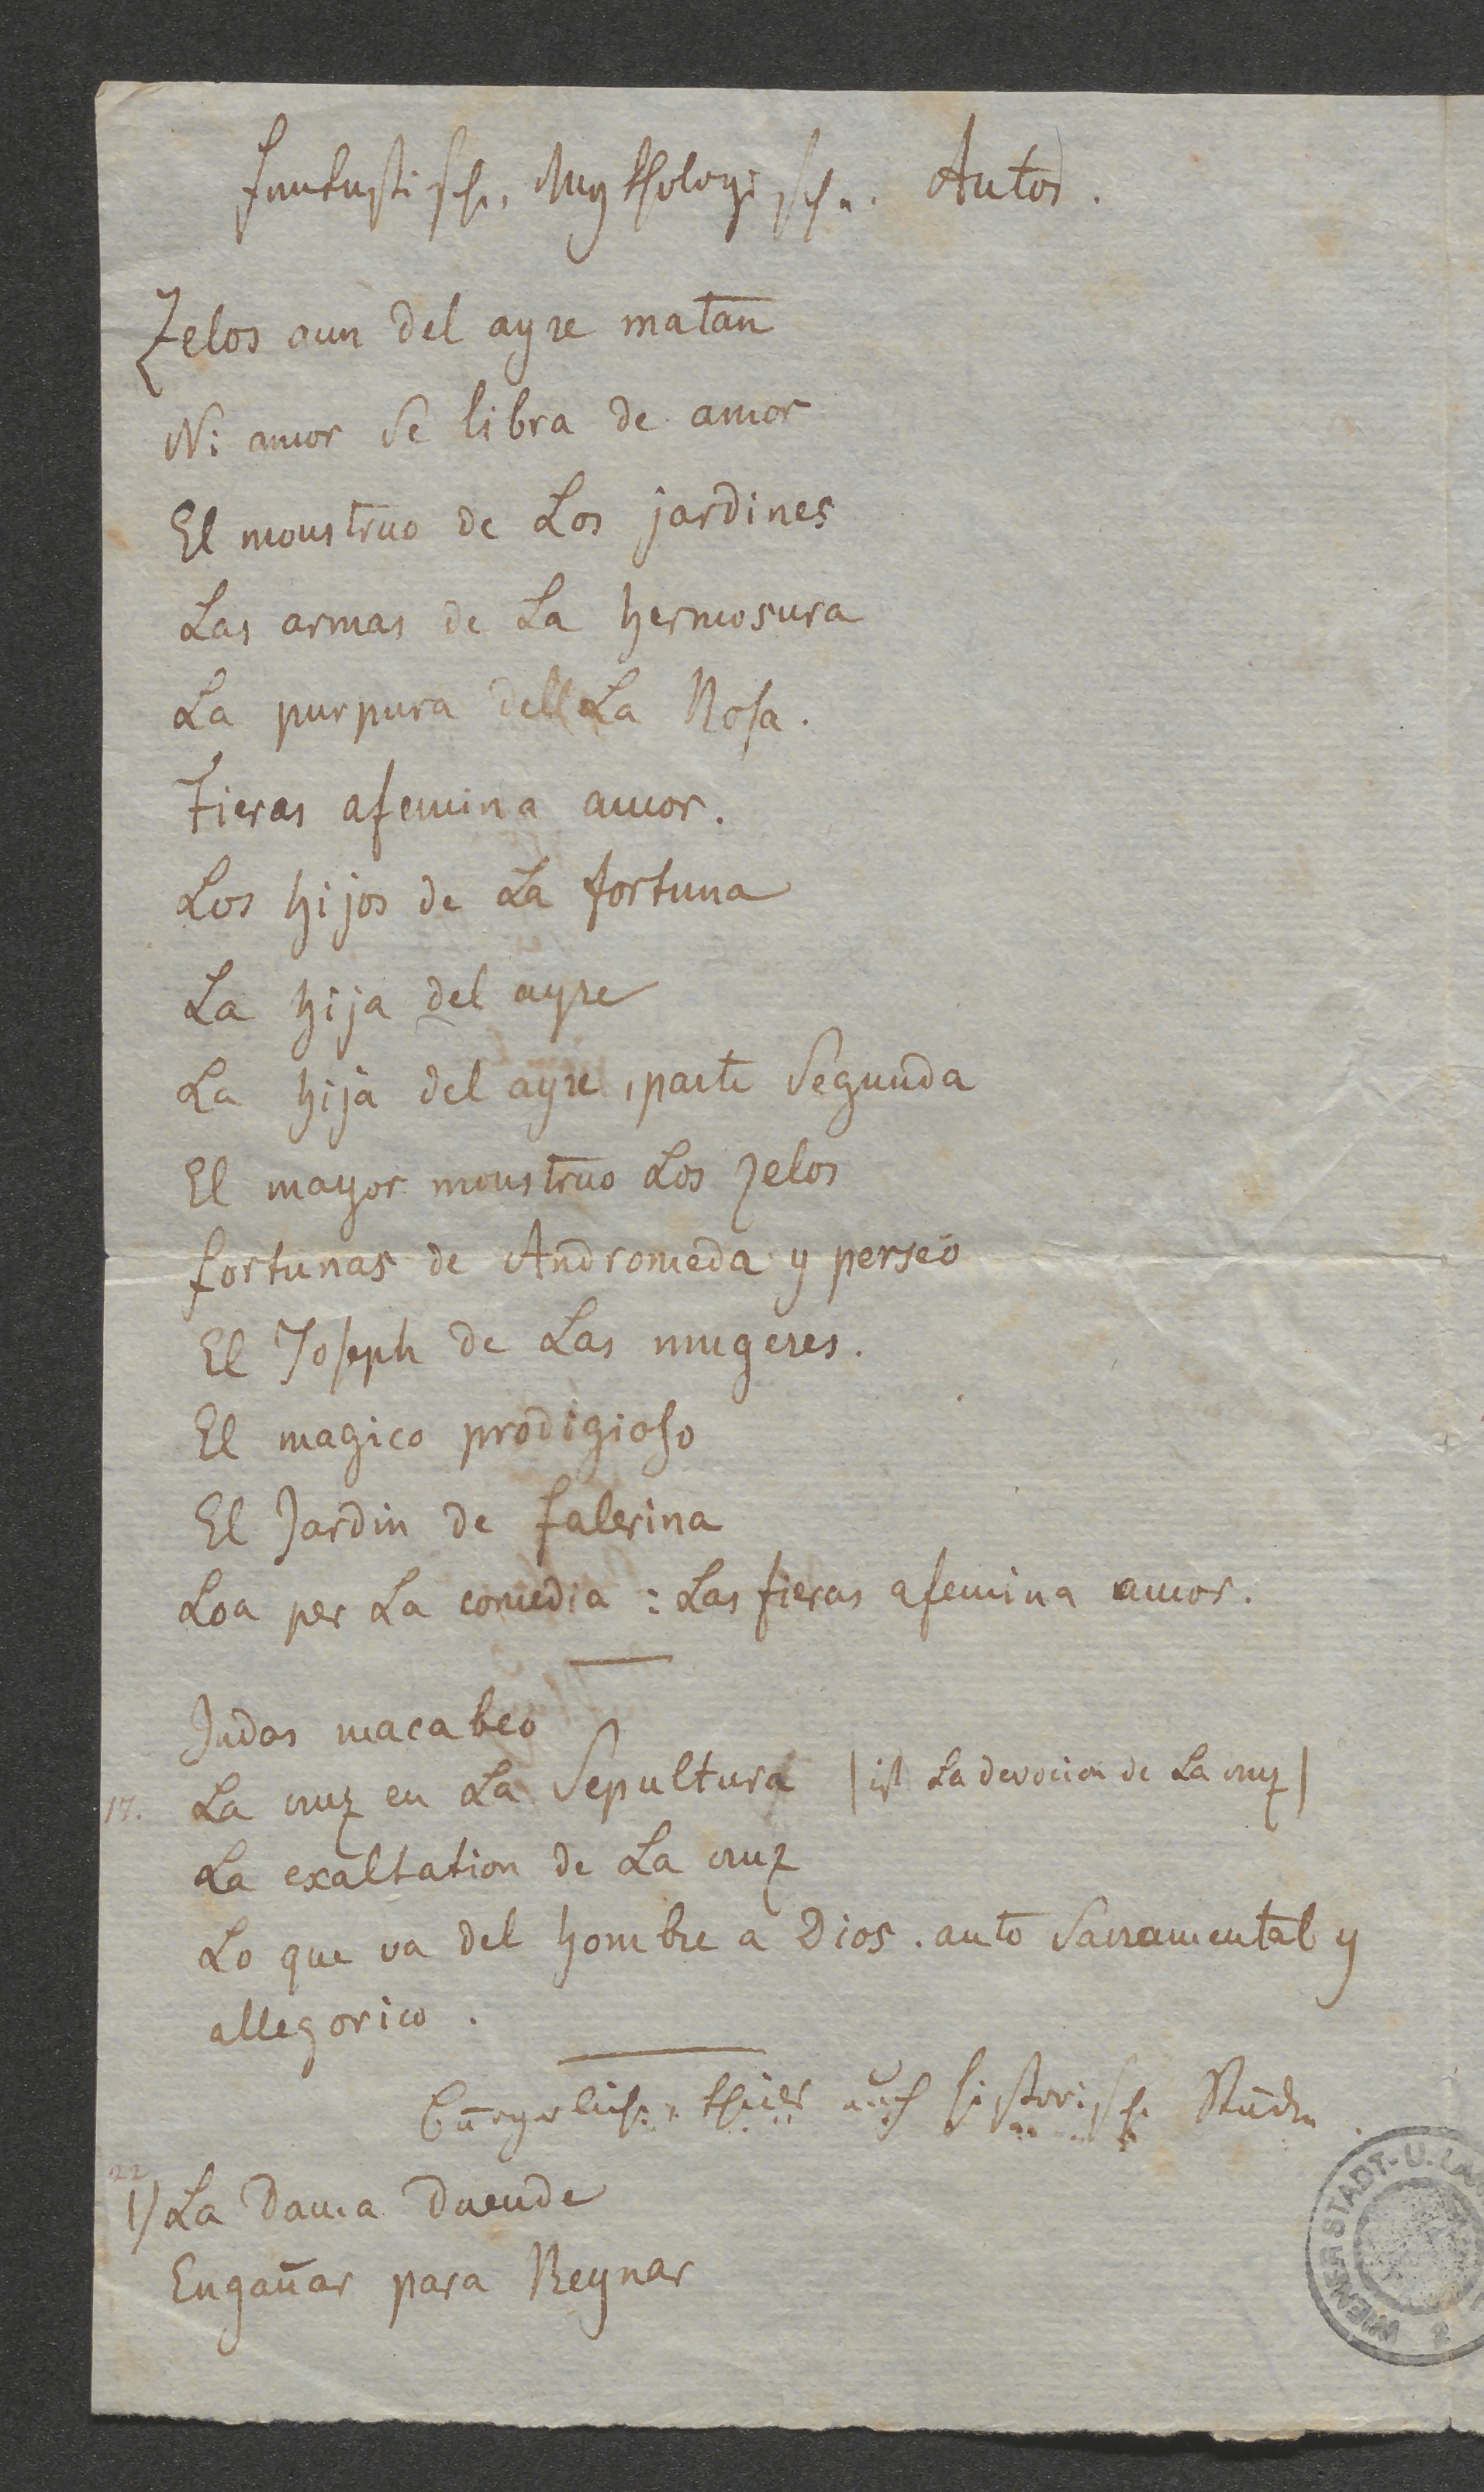 fantastische, Mythologische. Autos.
Zelos aun del ayre matan
Ni amor se libra de amor
El monstruo de Los jardines
Las armas de La hermosura
La purpura dell La Rosa.
Fieras afemina amor.
Los hijos de La fortuna
La hija del ayre
La hija del ayre, parte Segunda
El mayor monstruo Los zelos
fortunas de Andromeda y perseo
El Joseph de Las mugeres.
El magico prodigioso
El Jardin de falerina
Loa per La comedia : Las fieras afemina amor.
Judas macabeo
17. La cruz en La Sepultura | ist La devocion de La cruz |
La exaltation de La cruz
Lo que va del hombre a Dios. auto Sacramental y
allegorico.
Bürgerliche, auch historische Stücke.
22
1) La Dama Duende
Engañar para Reynar
WIENER STADT- U.